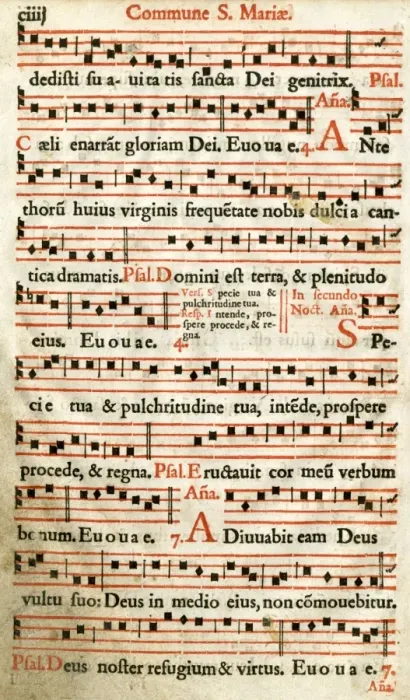 ciiij Commune S. Mariæ.
dedisti su a- uita tis sancta Dei genitrix. Psal.
Aña.
C æli enarrãt gloriam Dei. Euo ua e. 4. A Nte
thorũ huius virginis frequẽtate nobis dulcia can-
tica dramatis. Psal. Domini est terra, & plenitudo
Vers. S pecie tua &
pulchritudine tua.
Resp. I ntende, pro-
spere procede, & re-
gna.
In secundo
Noct. Aña.
eius. Eu o u ae. 4. S Pe-
cie tua & pulchritudine tua, intẽde, prospere
procede, & regna. Psal. Eructauit cor meũ verbum
Aña.
bonum. Eu o u a e. 7. A Diuuabit eam Deus
vultu suo: Deus in medio eius, non cõmouebitur.
Psal. Deus noster refugium & virtus. Eu o u a e. 7.
Aña.